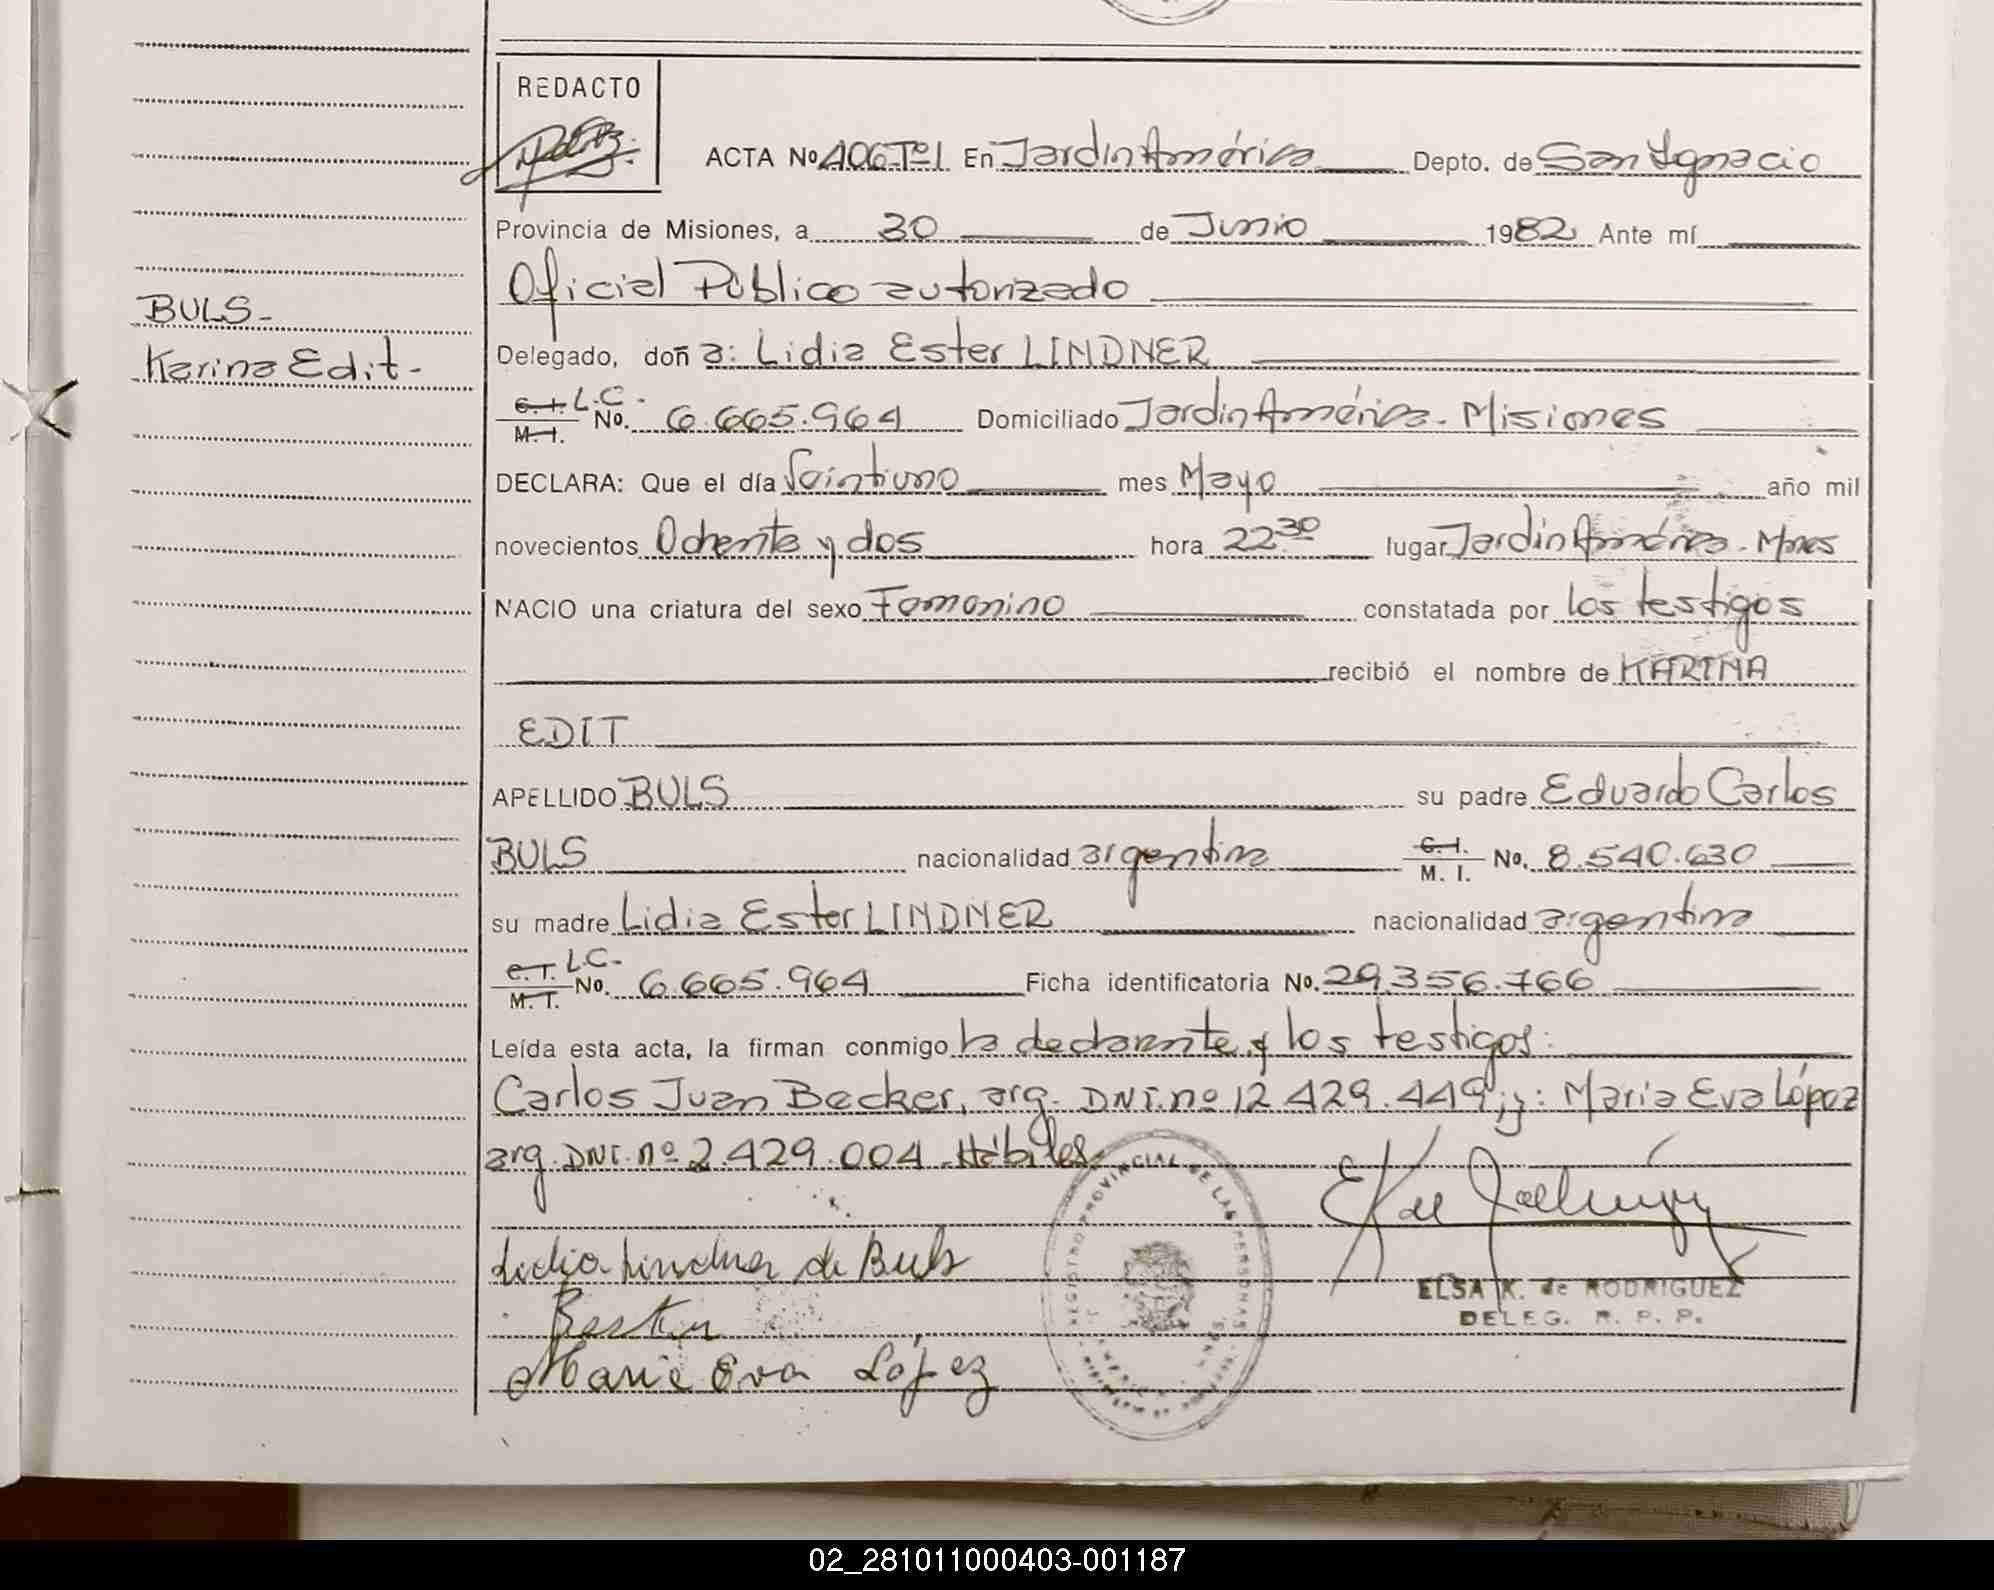 REDACTO
ACTA Nº 406 Tº I. En Jardin América Depto. de San Ignacio
Provincia de Misiones, a 30 de Junio 1982 Ante mí
Oficial Público autorizado
BULS-
Karina Edit-
Delegado, doñ a: Lidia Ester LINDNER
C. I. M. I. L.C. No. 6.665.964 Domiciliado Jardin América - Misiones
DECLARA: Que el día Veintiuno mes Mayo año mil
novecientos Ochenta y dos hora 22 30 lugar Jardin América - Mnes
NACIO una criatura del sexo Femenino constatada por los testigos
recibió el nombre de KARINA
EDIT
APELLIDO BULS su padre Eduardo Carlos
BULS nacionalidad argentina C. I. M. I. No. 8.540.630
su madre Lidia Ester LINDNER nacionalidad argentina
C. I. M. I. L.C. No. 6.665.964 Ficha identificatoria No. 29.356.766
Leída esta acta, la firman conmigo la declarante y los testigos:
Carlos Juan Becker, arg. DNI. nº 12.429.449; y: Maria Eva López
arg. DNI. nº 2.429.004 Hábiles.
REGISTRO PROVINCIAL DE LAS PERSONAS
Lidia Lindner de Buls
ELSA K. de RODRIGUEZ
DELEG. R. P. P.
Maria Eva López
02_281011000403-001187